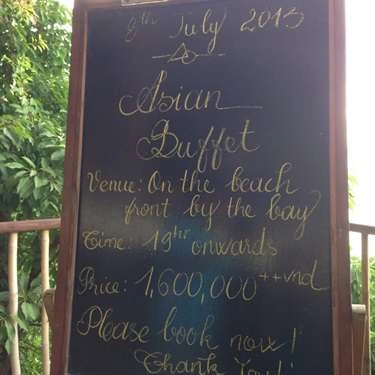 9th July 2013
Asian
Buffet
Venue: On the beach
front by the bay
Time: 19hr onwards
Price: 1,600,000++vnd
Please book now!
Thank You!